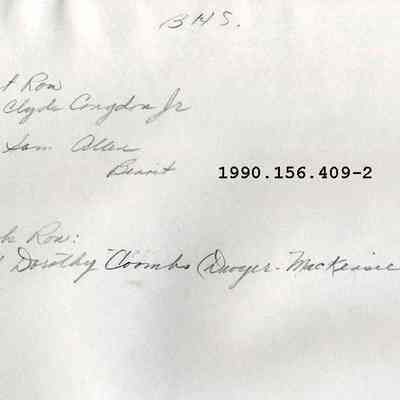 B H S.
t Row
Clyde Congdon Jr
Sam Allen
Benoit
1990.156.409-2
Row:
Dorothy Coombs (Dwyer-MacKenzie